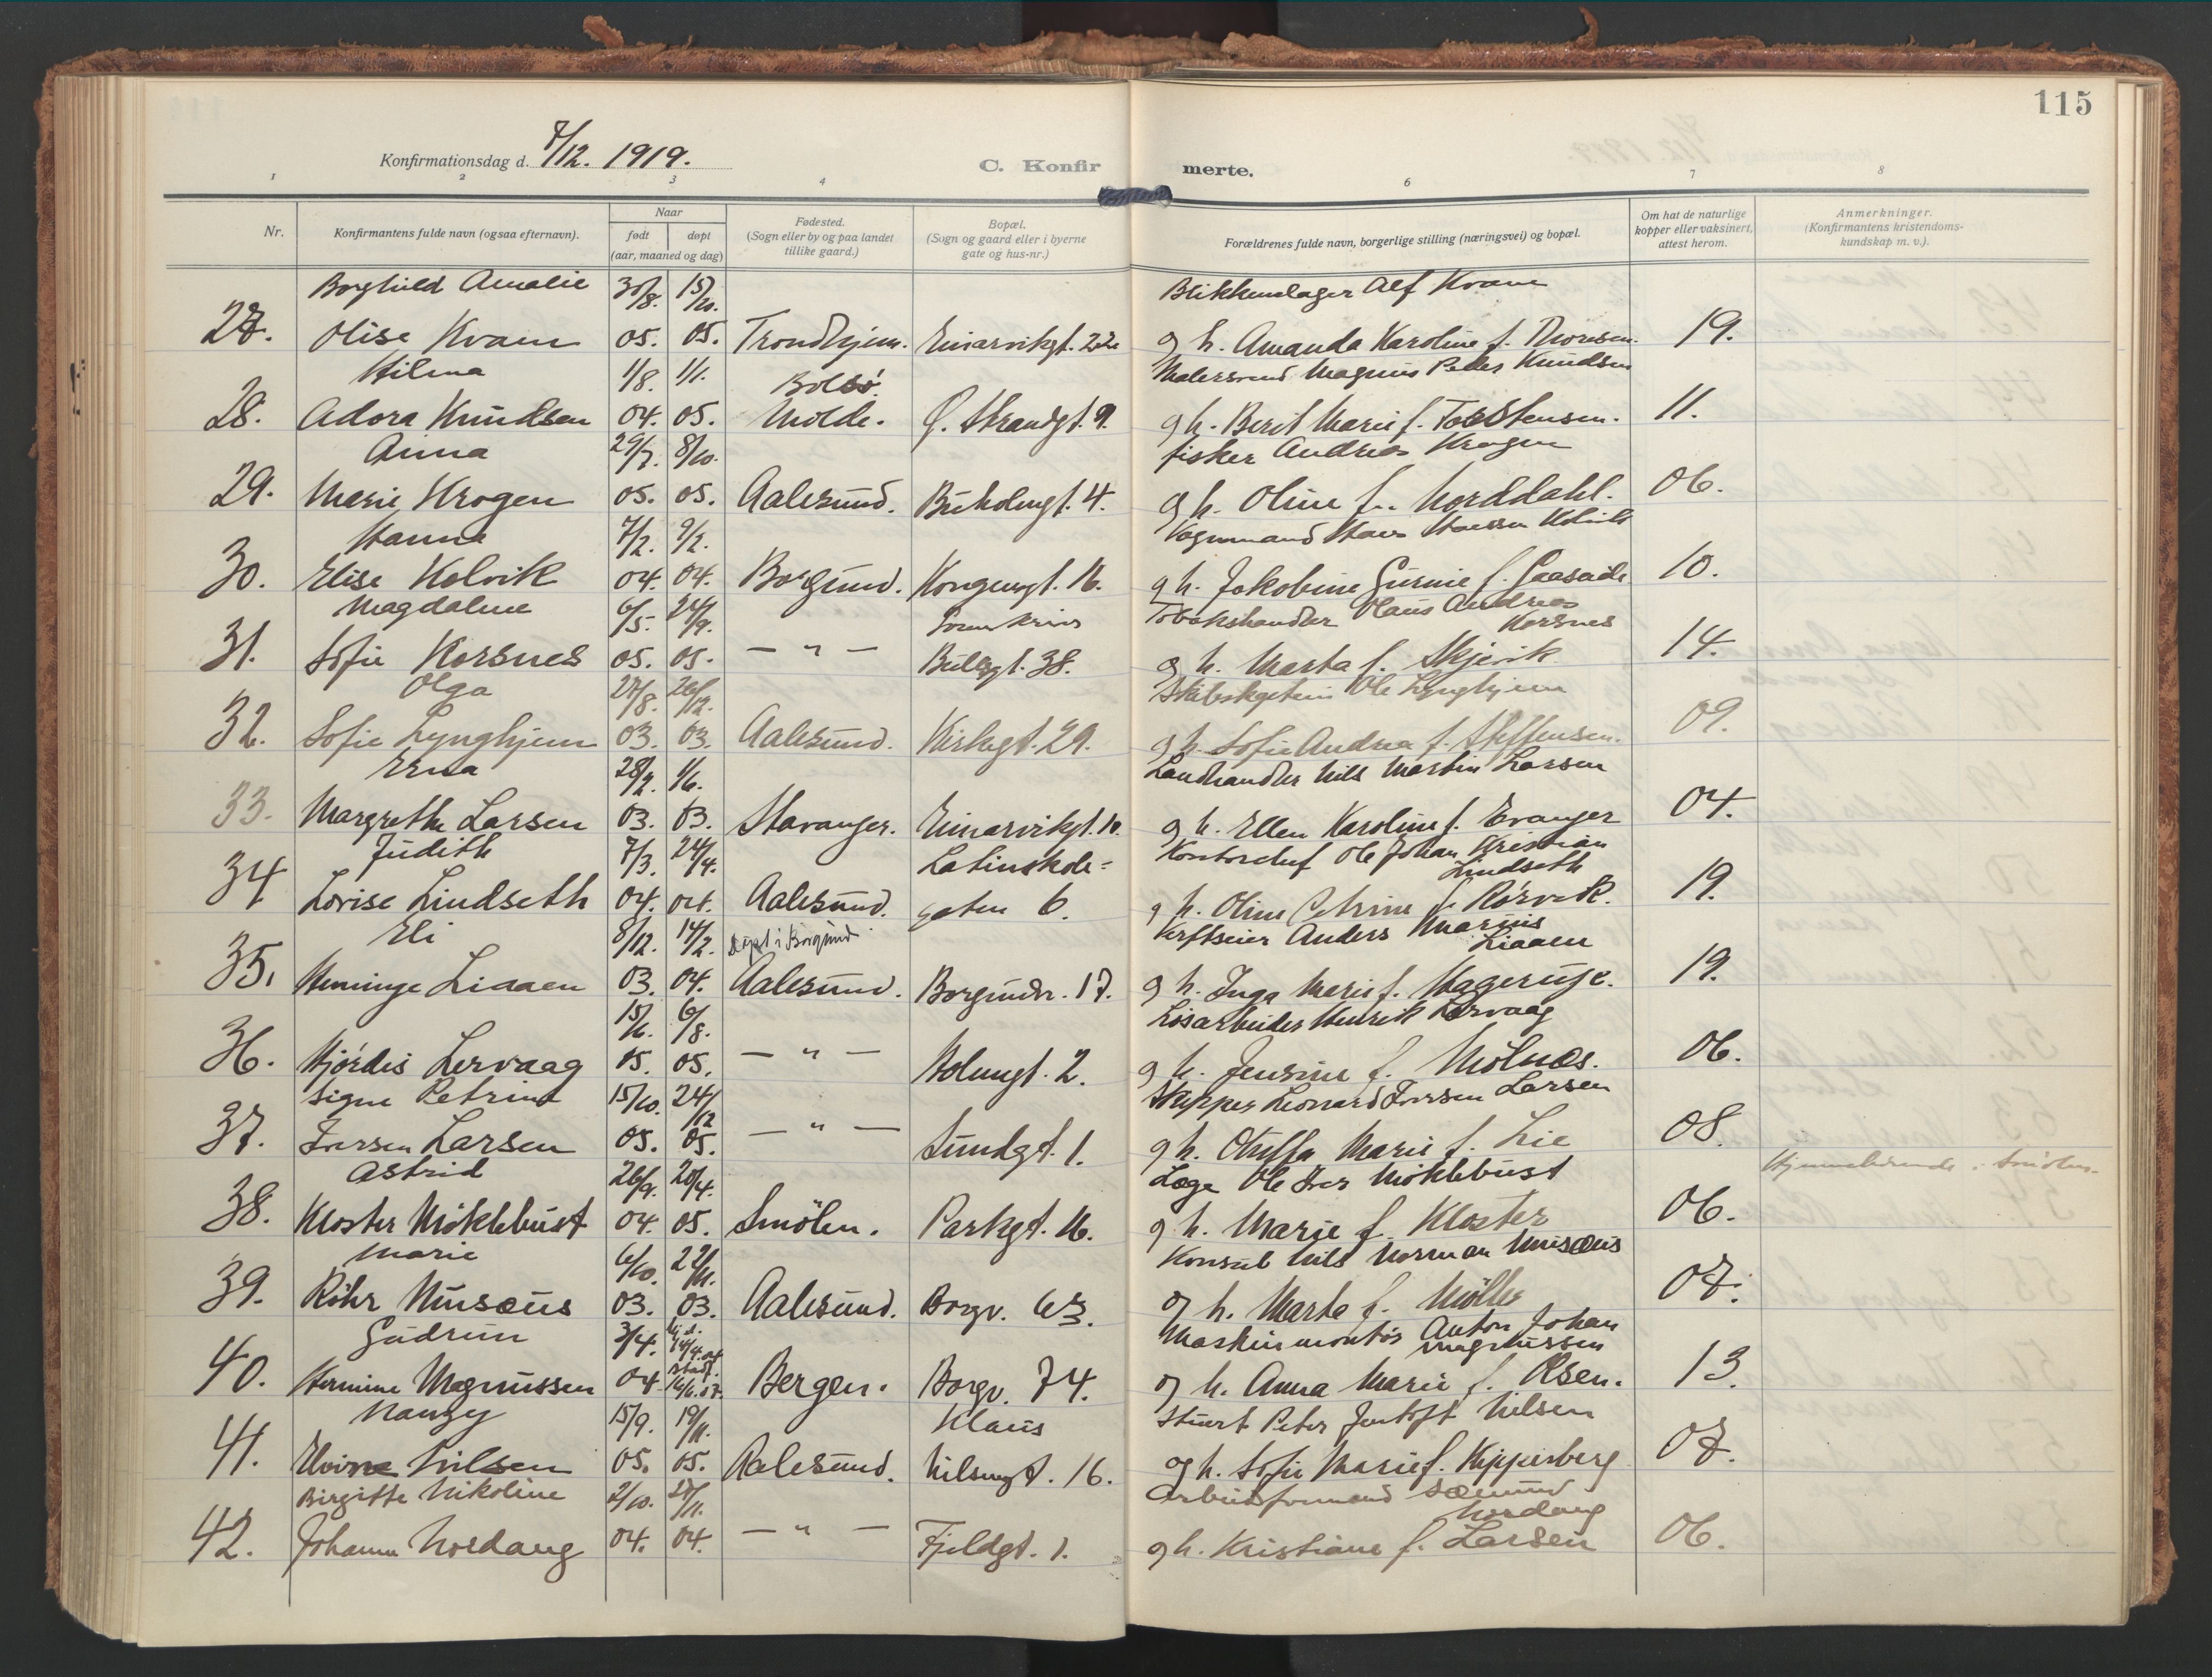 115
Konfirmationsdag d. 7/12. 1919.
C. Konfirmerte.
1 2 3 4 6 7 8
Nr.
Konfirmantens fulde navn (ogsaa efternavn).
Naar
født døpt
(aar, maaned og dag)
Fødested.
(Sogn eller by og paa landet
tillike gaard.)
Bopæl.
(Sogn og gaard eller i byerne
gate og hus-nr.)
Forældrenes fulde navn, borgerlige stilling (næringsvei) og bopæl.
Om hat de naturlige
kopper eller vaksinert,
attest herom.
Anmerkninger.
(Konfirmantens kristendoms-
kundskap m. v.).
Borghild Amalie 30/8. 15/10. Blikkenslager Alf Kvam
27. Olise Kvam 05. 05. Trondhjem. Einarvikgt. 22 g h. Amanda Karoline f. Thoresen. 19.
Hilma 1/8. 1/1. Bolsö. Malersvend Magnus Peter Knudsen
28. Adora Knudsen 04. 05. Molde. Ø. Strandgt. 9. g h. Berit Marie f. Torstensen. 11.
Anna 29/7. 8/10. fisker Andreas Krogen
29. Marie Krogen 05. 05. Aalesund. Buholmgt. 4. g h. Oline f. Norddahl. 06.
Hanna 7/2. 9/2. Vognmand Hans Hansen Kolvik
30. Elise Kolvik 04. 04. Borgund. Kongensgt. 16. g h. Jakobine Gurine f. Gaaseide 10.
Magdaline 6/5. 24/9. Tobakshandler Olaus Andreas
Korsnes
31. Sofie Korsnes 05. 05. — " — Bullsgt. 38. g h. Marta f. Skjervik 14.
Olga 27/8. 26/12. Skibskaptein Ole Lynghjem
32. Sofie Lynghjem 03. 03. Aalesund. Kirkegt. 29. g h. Sofie Andrea f. Steffensen. 09.
Erna 28/2. 1/6. Landhandler Nils Martin Larsen
33. Margrethe Larsen 03. 03. Stavanger. Einarvikgt. 10. g h. Ellen Karoline f. Evanger 04.
Judith 7/3. 24/4. Latinskole- Kontorchef Ole Johan Kristian
Lindseth
34 Lovise Lindseth 04. 04. Aalesund. gaten 6. g h. Oline Petrine f. Rörvik. 19.
Eli 8/12. 14/2. döpt i Borgund. Verftseier Anders Marius
Liaaen
35. Henninge Liaaen 03. 04. Aalesund. Borgundv. 17. g h. Inga Marie f. Hagerup. 19.
15/6. 6/8. Løsarbeider Henrik Lervaag
36. Hjördis Lervaag 05. 05. — " — Holmegt. 2. g h. Jensine f. Molnes. 06.
Signe Petrine 15/10. 24/12 Skipper Leonard Iversen Larsen
37. Iversen Larsen 05. 05. — " — Sundgt. 1. g h. Oluffa Marie f. Lie 08.
Astrid 26/9. 20/4. Læge Ole Iver Möklebust
38. Kloster Möklebust 04. 05. Smölen. Parkgt. 16. g h. Marie f. Kloster 06.
Marie 6/10. 22/11. Konsul Nils Norman Musæus
39. Röhr Musæus 03. 03. Aalesund. Borgv. 63. og h. Marta f. Möller 07.
Gudrun 3/4. hj.d. 14/4.04 Maskinmontör Anton Johan
Magnussen
40. Hermine Magnussen 04 stadf. Bergen. Borgv. 74. og h. Anna Marie f. Olsen. 13.
Nanzy 15/9. 19/11. Klaus Stuert Peter Jentoft Nilsen
41. Elvine Nilsen 05. 05. Aalesund. Nilsengt. 16. og h. Sofie Marie f. Kipperberg 07.
Birgitte Nikoline 2/10. 27/11. Arbeidsformand Sæmund
Nordang
42. Johanne Nordang 04. 04. — " — Fjeldgt. 1. g h. Kristiane f. Larsen 06.